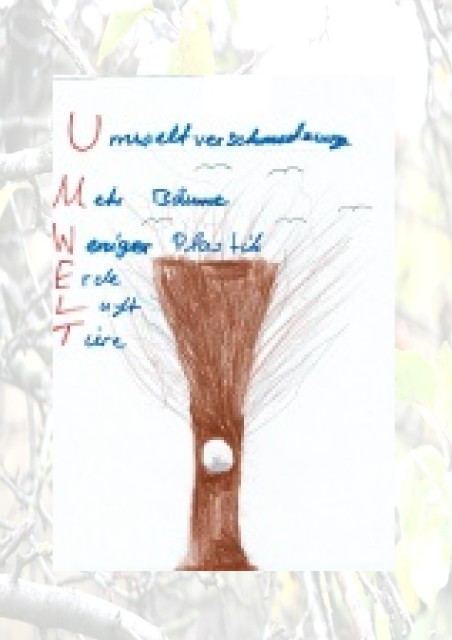 Umweltverschmutzung
Mehr Bäume
Weniger Plastik
Erde
Luft
Tiere